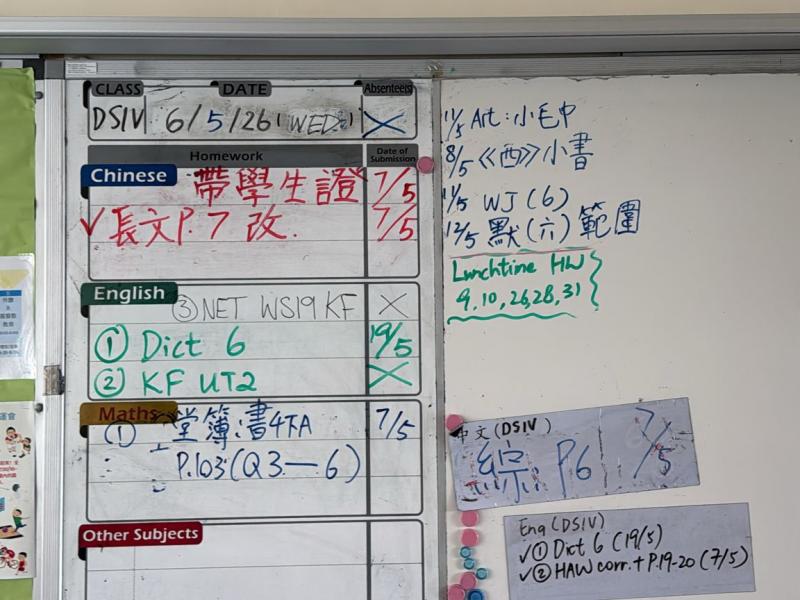 CLASS DATE Absentees
DSIV 6/5/26 (WED.) X
Homework Date of Submission
Chinese 帶學生證 7/5
✓長文P.7 改. 7/5
English ③NET WS19 KF X
① Dict 6 19/5
② KF UT2 X
Maths ① 堂簿:書4下A 7/5
P.103(Q3—6)
Other Subjects
11/5 Art:小毛巾
8/5 《西》小書
11/5 WJ(6)
12/5 默(六)範圍
Lunchtime HW
9,10,26,28,31
中文(DSIV)
綜 P6 7/5
Eng (DSIV)
✓① Dict 6 (19/5)
✓② HAW corr. + P.19-20 (7/5)